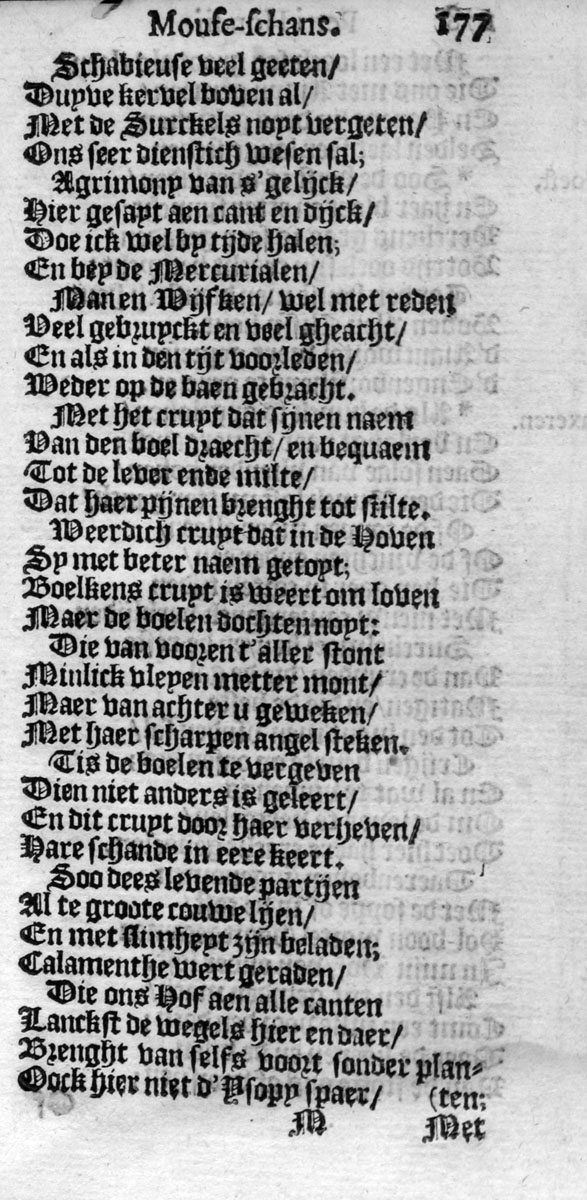 Moufe-schans. 177
Schabieuse veel geeten/
Duyve kervel boven al/
Met de Surckels noyt vergeten/
Ons seer dienstich wesen sal;
Agrimony van s'gelijck/
Hier gesayt aen cant en dijck/
Doe ick wel by tijde halen;
En bey de Mercurialen/
Man en Wijfken/ wel met reden
Veel gebruyckt en veel gheacht/
En als in den tijt voorleden/
Weder op de baen gebracht.
Met het cruyt dat sijnen naem
Van den boel draecht/ en bequaem
Tot de lever ende milte/
Dat haer pijnen brenght tot stilte.
Weerdich cruyt dat in de Hoven
Sy met beter naem getoyt;
Boelkens cruyt is weert om loven
Maer de boelen dochten noyt:
Die van vooren t'aller stont
Minlick vleyen metter mont/
Maer van achter u geweken/
Met haer scharpen angel steken.
Tis de boelen te vergeven
Dien niet anders is geleert/
En dit cruyt door haer verheven/
Hare schande in eere keert.
Soo dees levende partijen
Al te groote couwe lijen/
En met slimheyt zijn beladen;
Calamenthe wert geraden/
Die ons Hof aen alle canten
Lanckst de wegels hier en daer/
Brenght van selfs voort sonder plan-
Oock hier niet d'Ysopy spaer/ (ten;
M Met